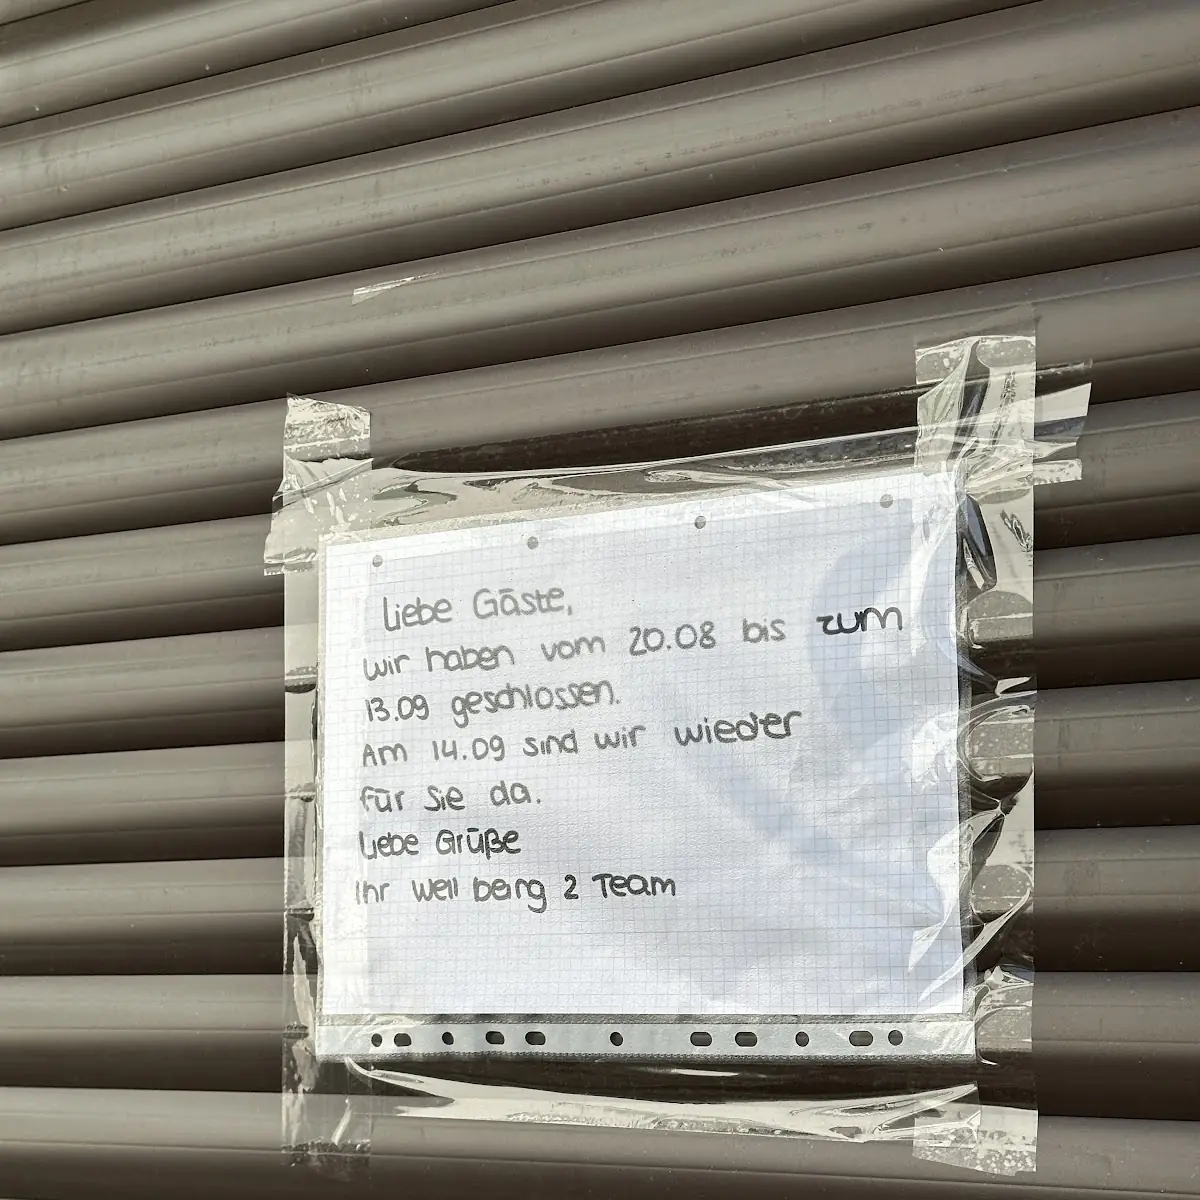 Liebe Gäste,
wir haben vom 20.08 bis zum
13.09 geschlossen.
Am 14.09 sind wir wieder
für Sie da.
Liebe Grüße
Ihr Well being 2 Team